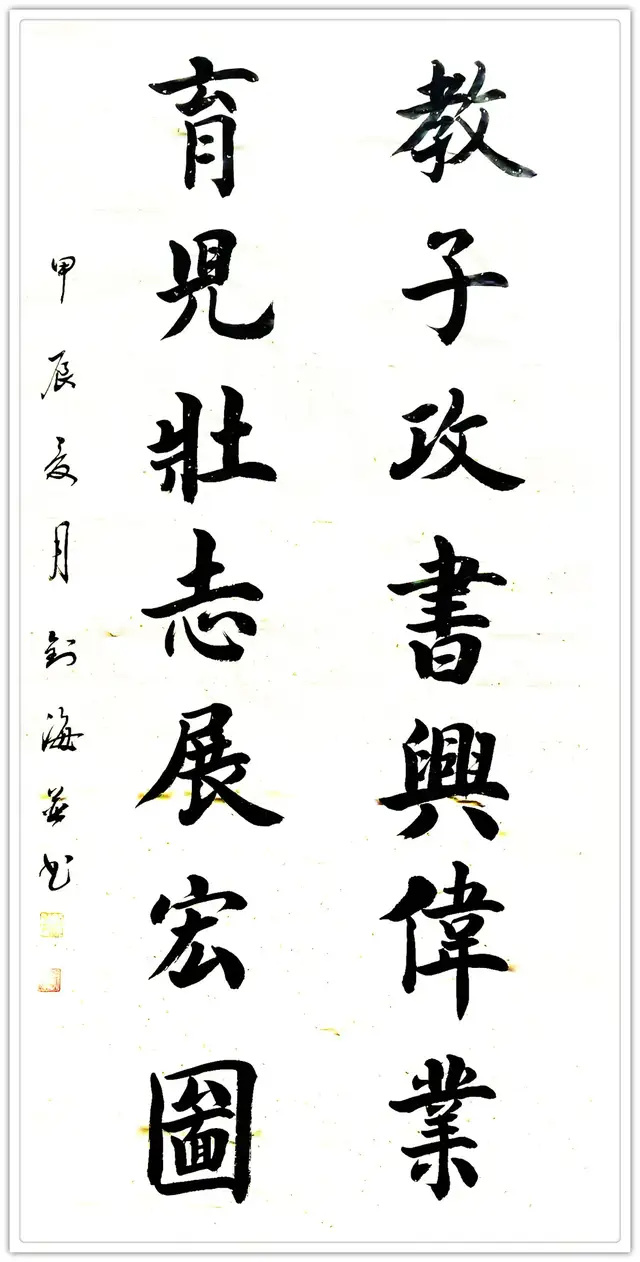 教子攻書興偉業
育児壯志展宏圖
甲辰夏月劉海英书